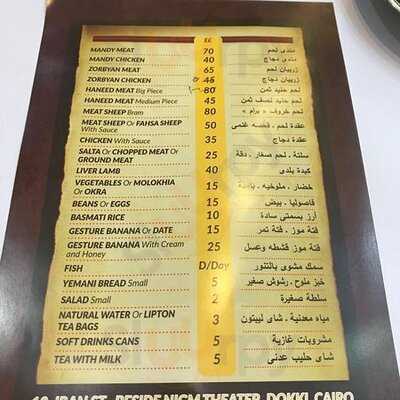 EE
MANDY MEAT 70 مندي لحم
MANDY CHICKEN 40 مندي دجاج
ZORBYAN MEAT 65 زوربيان لحم
ZORBYAN CHICKEN 45 زوربيان دجاج
HANEED MEAT Big Piece 80 لحم حنيد ثمن
HANEED MEAT Medium Piece 45 لحم حنيد نصف ثمن
MEAT SHEEP Bram 80 لحم خروف « برام »
MEAT SHEEP Or FAHSA SHEEP With Sauce 50 عقدة لحم . فحسه غنمى
CHICKEN With Sauce 35 عقدة دجاج
SALTA Or CHOPPED MEAT Or GROUND MEAT 25 سلتة . لحم صغار . دقة
LIVER LAMB 40 كبدة بلدى
VEGETABLES Or MOLOKHIA Or OKRA 15 خضار . ملوخيه . بامية
BEANS Or EGGS 15 فاصوليا . بيض
BASMATI RICE 10 أرز بسمتي سادة
GESTURE BANANA Or DATE 15 فتة موز . فتة تمر
GESTURE BANANA With Cream and Honey 25 فتة موز قشطه وعسل
FISH D/Day سمك مشوى بالتنور
YEMANI BREAD Small 5 خبز ملوح . رشوش صغير
SALAD Small 2 سلطة صغيرة
NATURAL WATER Or LIPTON TEA BAGS 3 مياه معدنية . شاى ليبتون
SOFT DRINKS CANS 5 مشروبات غازية
TEA WITH MILK 5 شاى حليب عدنى
IRAN ST. BESIDE NIGM THEATER, DOKKI, CAIRO